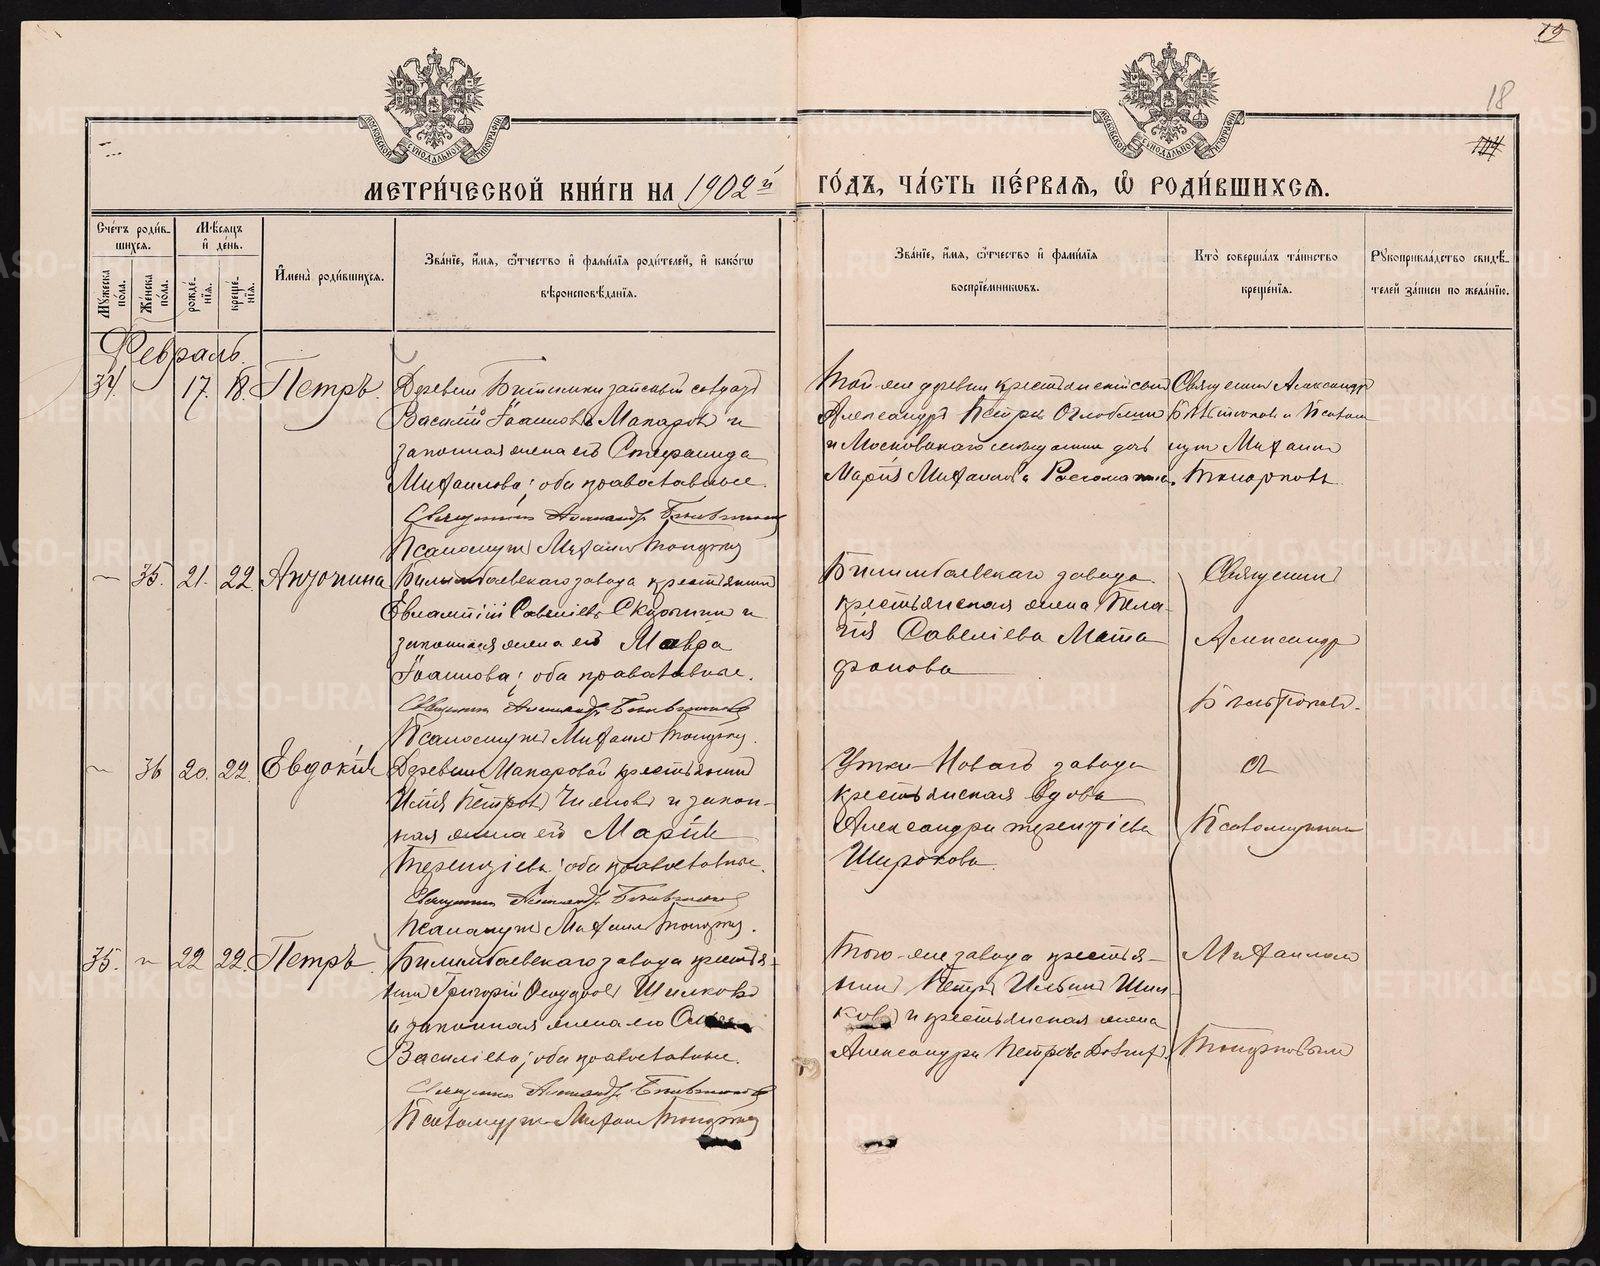 19
18
МЕТРИ́ЧЕСКОЙ КНИ́ГИ НА 1902й
ГО́ДЪ, ЧА́СТЬ ПЕ́РВАѦ, Ѽ РОДИ́ВШИХСѦ.
Сче́тъ роди́вшихсѧ.
Му́жеска по́ла.
Же́нска по́ла.
Мѣ́сѧцъ и де́нь.
рожде́нїѧ.
креще́нїѧ.
И́мена роди́вшихсѧ.
Зва́нїе, и́мѧ, ѻ́тчество и фами́лїѧ роди́телей, и како́гѡ
вѣроисповѣ́данїѧ.
Зва́нїе, и́мѧ, ѻ́тчество и фами́лїѧ
воспрїе́мникѡвъ.
Кто̀ соверша́лъ та́инство
креще́нїѧ.
Рꙋкоприкла́дство свидѣ́-
телей за́писи по жела́нїю.
Февраль.
34. 17. 18. Петръ.
Деревни запасный солдатъ
Василій Іоанновъ Макаровъ и
законная жена его Стефанида
Михаилова; оба православные.
Священникъ Александръ
Псаломщикъ Михаилъ Топорковъ
Той-же деревни крестьянскій сынъ
Александръ Петровъ Оглоблинъ
и Московскаго мещанина дочь
Марія Михаилова
Священникъ Александръ
и Псалом
щикъ Михаилъ
Топорковъ.
" 35. 21. 22. Антонина
Билимбаевскаго завода крестьянинъ
Евлампій Савеліевъ и
законная жена его Мавра
Іоаннова; оба православные.
Священникъ Александръ
Псаломщикъ Михаилъ Топорковъ.
Билимбаевскаго завода
крестьянская жена Пела-
гія Савеліева
Священникъ
Александръ
" 36 20. 22. Евдокія
Деревни Макаровой крестьянинъ
Илія Петровъ и закон-
ная жена его Марія
Терентіева; оба православные.
Священникъ Александръ
Псаломщикъ Михаилъ Топорковъ.
Утки-Новаго завода
крестьянская вдова
Александра Терентіева
Широкова
съ
Псаломщикомъ
35. " 22 22. Петръ.
Билимбаевскаго завода крестья-
нинъ Григорій Шилковъ
и законная жена его
Василіева; оба православные.
Священникъ Александръ
Псаломщикъ Михаилъ Топорковъ
Того-же завода крестья-
нинъ Петръ Ильинъ Шил-
ковъ и крестьянская жена
Александра Петрова
Михаиломъ
Топорковымъ